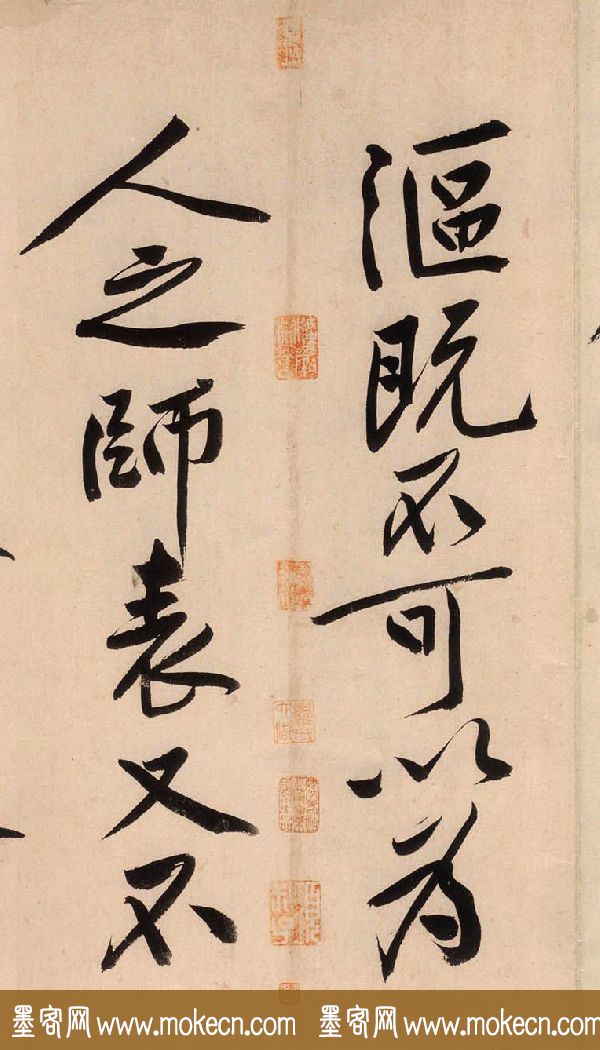 漚既不可以為
人之師表又不
墨客网 www.mokecn.com 墨客网 www.mokecn.com